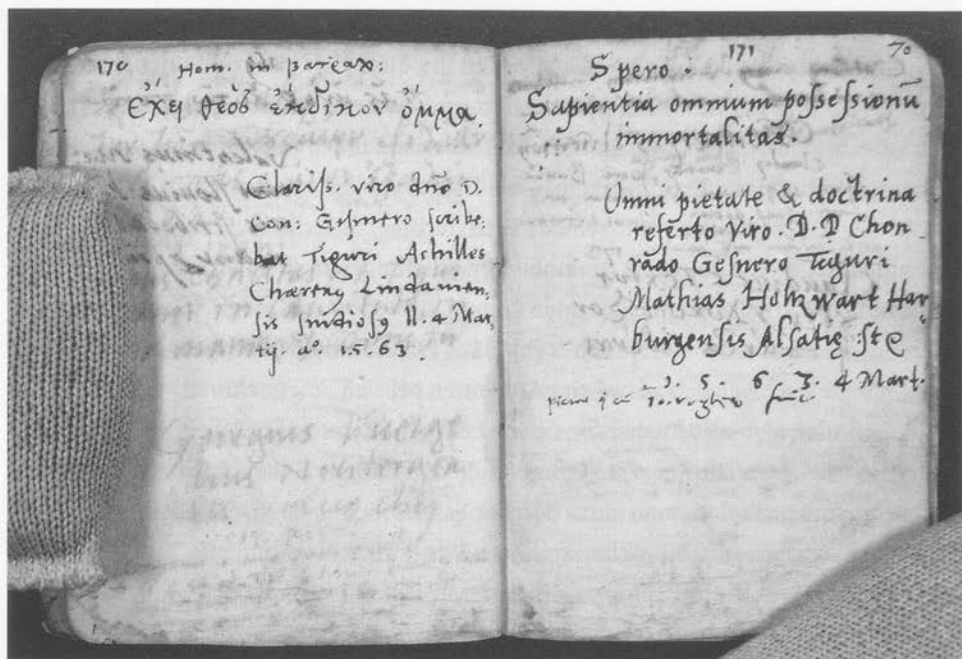 170
Hom. in βατραχ:
ἔχει θεὸς ἔκδικον ὄμμα.
Clariss. viro dño D.
Con: Gesnero scribe,
bat Tiguri Achilles
Lindauien,
sis studiosꝰ 4 Mar,
tij. aº. 15.63.
171 70
Spero.
Sapientia omnium possessionū
immortalitas.
Omni pietate & doctrina
referto viro. D. D Chon,
rado Gesnero Tiguri
Mathias Holtzwart Har,,
burgensis Alsatię
1. 5. 6 3. 4 Mart.